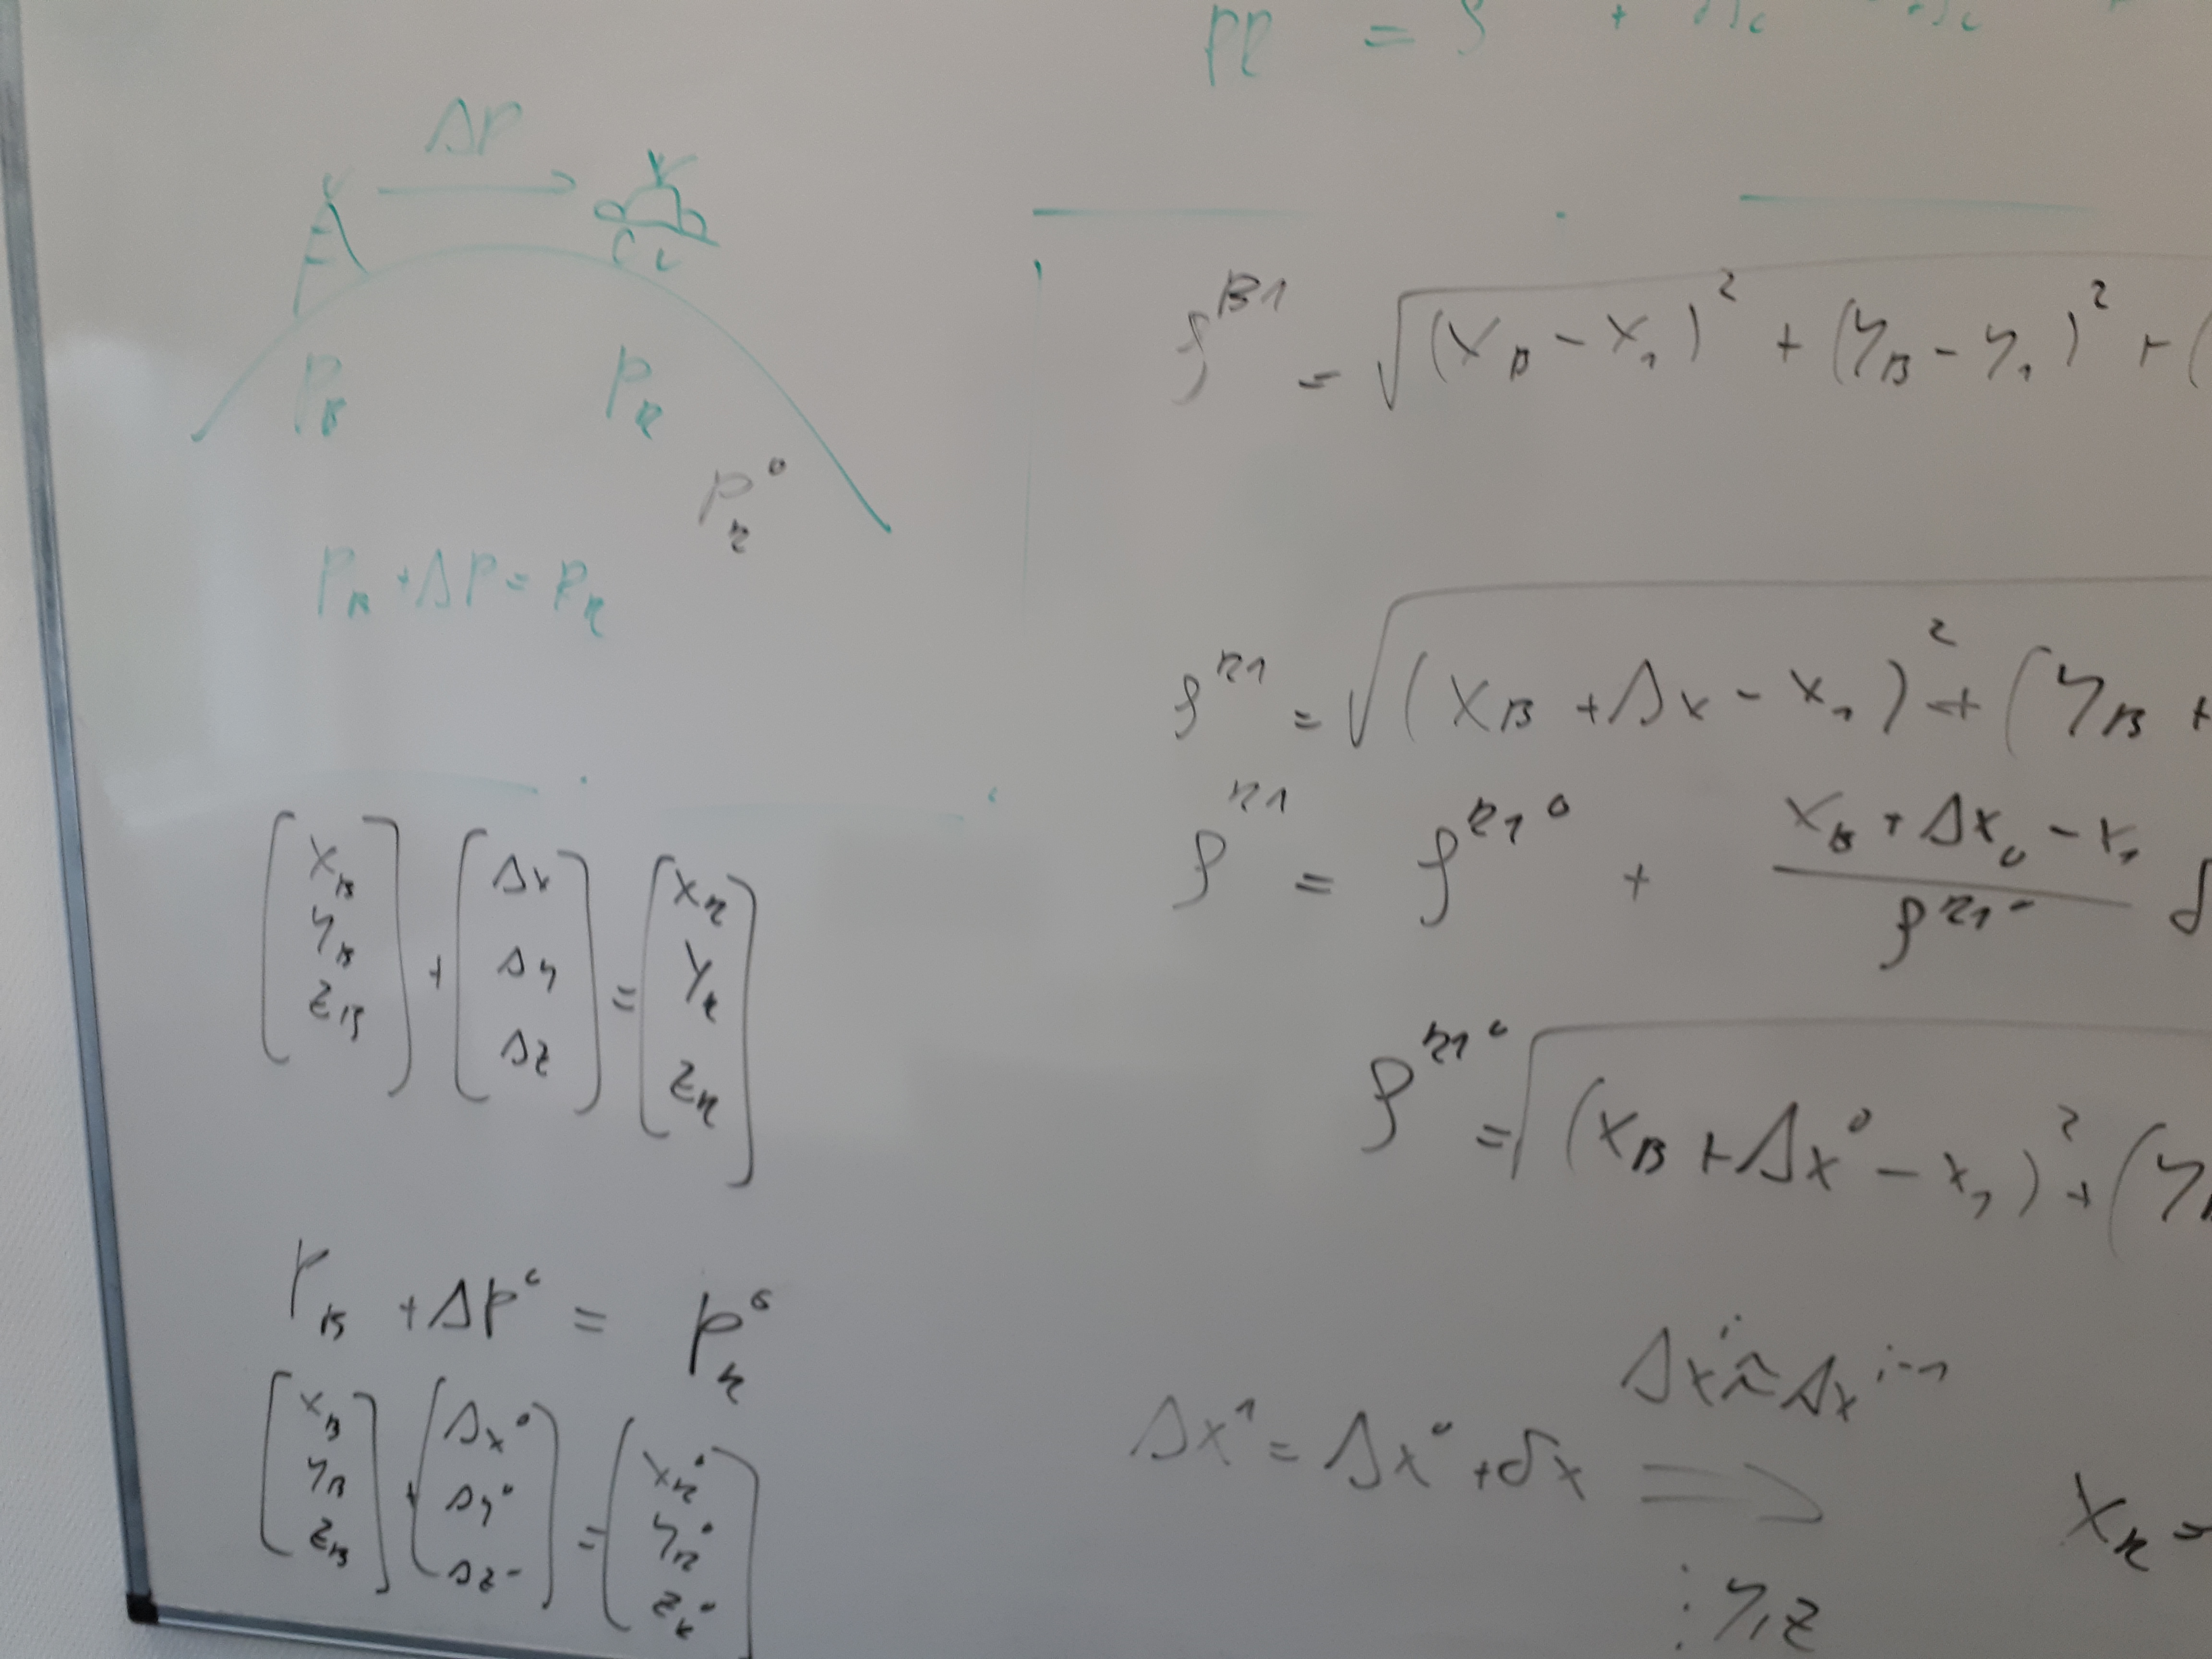 ΔP
P_B P_R
P_R^0
P_B + ΔP = P_R
[x_B y_B z_B] + [Δx Δy Δz] = [x_R y_R z_R]
P_B + ΔP^0 = P_R^0
[x_B y_B z_B] + [Δx^0 Δy^0 Δz^0] = [x_R^0 y_R^0 z_R^0]
ρ^{B1} = √(x_B - x_1)^2 + (y_B - y_1)^2 + (
ρ^{R1} = √(x_B + Δx - x_1)^2 + (y_B +
ρ^{R1} = ρ^{R1 0} + (x_B + Δx_0 - x_1) / ρ^{R1 0} δ
ρ^{R1 0} = √(x_B + Δx^0 - x_1)^2 + (y_B
Δx^i ≈ Δx^{i-1}
Δx^1 = Δx^0 + δx ⇒ x_R =
⋮ y, z